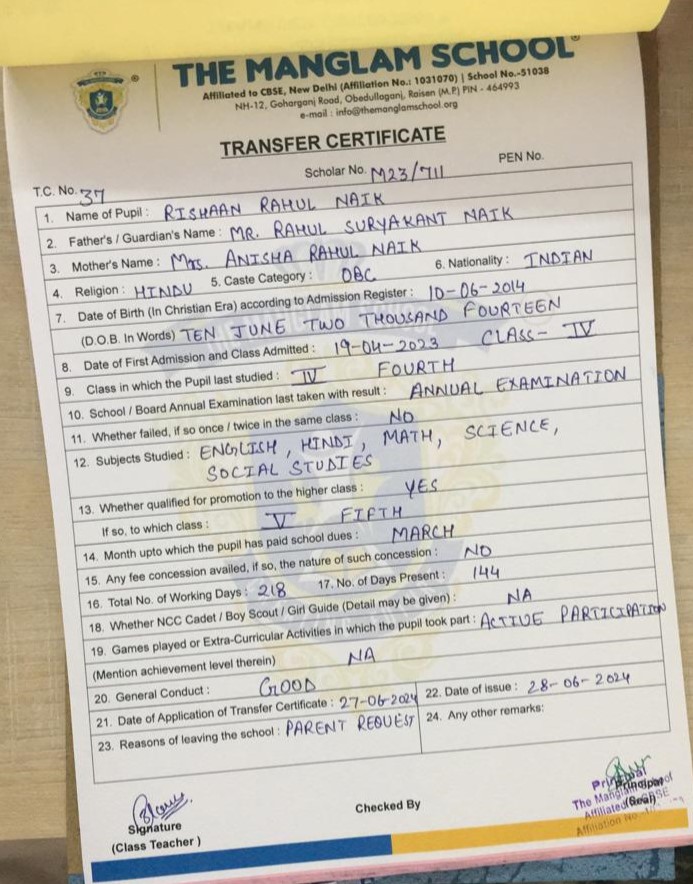 THE MANGLAM SCHOOL
Affiliated to CBSE, New Delhi (Affiliation No.: 1031070) | School No.-51038
NH-12, Goharganj Road, Obedullaganj, Raisen (M.P.) PIN - 464993
e-mail : info@themanglamschool.org
TRANSFER CERTIFICATE
T.C. No. 37 Scholar No. M23/711 PEN No.
1. Name of Pupil : RISHAAN RAHUL NAIK
2. Father's / Guardian's Name : MR. RAHUL SURYAKANT NAIK
3. Mother's Name : Mrs. ANISHA RAHUL NAIK
4. Religion : HINDU 5. Caste Category : OBC 6. Nationality : INDIAN
7. Date of Birth (In Christian Era) according to Admission Register : 10-06-2014
(D.O.B. In Words) TEN JUNE TWO THOUSAND FOURTEEN
8. Date of First Admission and Class Admitted : 19-04-2023 CLASS- IV
9. Class in which the Pupil last studied : IV FOURTH
10. School / Board Annual Examination last taken with result : ANNUAL EXAMINATION
11. Whether failed, if so once / twice in the same class : NO
12. Subjects Studied : ENGLISH, HINDI, MATH, SCIENCE,
SOCIAL STUDIES
13. Whether qualified for promotion to the higher class : YES
If so, to which class : V FIFTH
14. Month upto which the pupil has paid school dues : MARCH
15. Any fee concession availed, if so, the nature of such concession : NO
16. Total No. of Working Days : 218 17. No. of Days Present : 144
18. Whether NCC Cadet / Boy Scout / Girl Guide (Detail may be given) : NA
19. Games played or Extra-Curricular Activities in which the pupil took part : ACTIVE PARTICIPATION
(Mention achievement level therein) NA
20. General Conduct : GOOD
21. Date of Application of Transfer Certificate : 27-06-2024 22. Date of issue : 28-06-2024
23. Reasons of leaving the school : PARENT REQUEST 24. Any other remarks:
Signature
(Class Teacher )
Checked By
Principal
(Seal)
Principal
The Manglam
Affiliated CBSE
Affiliation No.